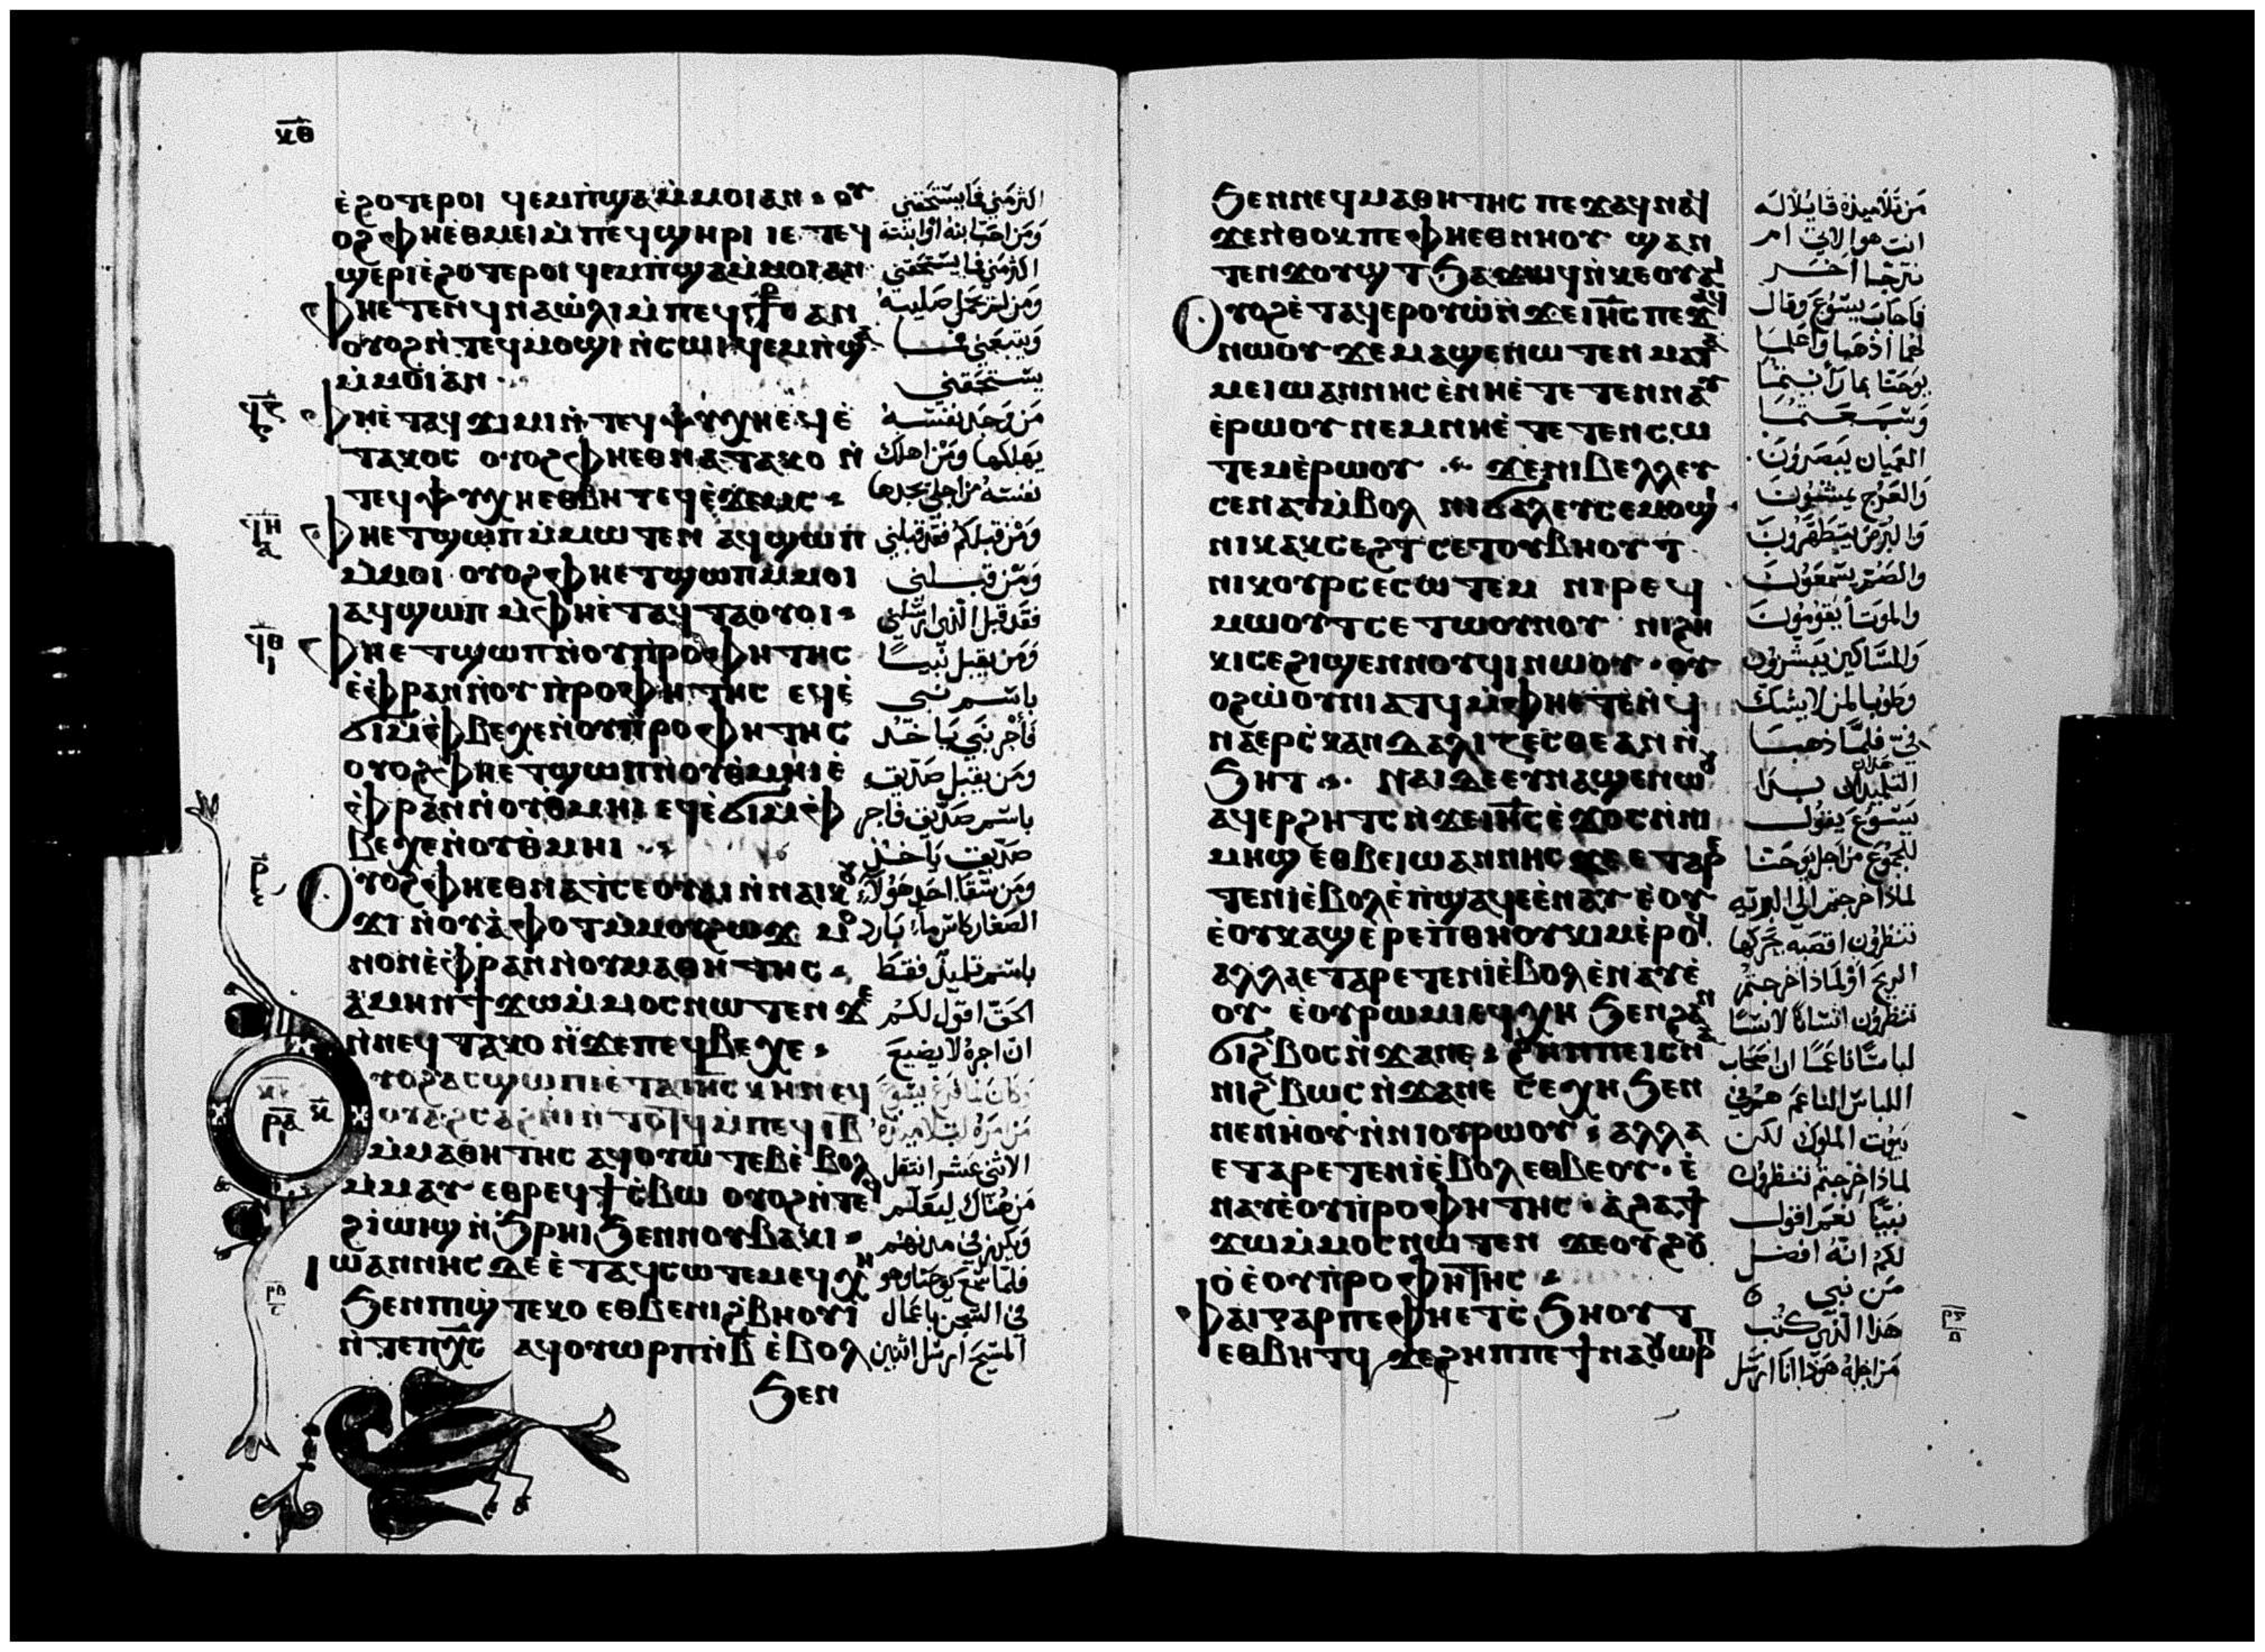 ⲕⲑ
ⲉ̀ϩⲟⲧⲉⲣⲟⲓ ϥⲉⲙⲡ̀ϣⲁⲙ̀ⲙⲟⲓⲁⲛ ⲟⲩ
ⲟϩⲫⲏⲉⲑⲙⲉⲓⲙ̀ⲡⲉϥϣⲏⲣⲓ ⲓⲉ ⲧⲉϥ
ϣⲉⲣⲓⲉ̀ϩⲟⲧⲉⲣⲟⲓ ϥⲉⲙⲡ̀ϣⲁⲙ̀ⲙⲟⲓⲁⲛ
ⲫⲏⲉⲧⲉⲛϥⲛⲁⲱ̀ⲗⲓⲙ̀ⲡⲉϥⲥ̅ⲣⲟ̅ⲥ ⲁⲛ
ⲟⲩⲟϩⲛ̀ⲧⲉϥⲙⲟϣⲓ ⲛ̀ⲥⲱⲓ ϥⲉⲙⲡ̀ϣⲁ
ⲙ̀ⲙⲟⲓⲁⲛ
ϥ̅ⲍ
ⲫⲏⲉ̀ⲧⲁϥϫⲓⲙⲓ ⲛ̀ⲧⲉϥⲯⲩⲭⲏⲉϥⲉ̀
ⲧⲁⲕⲟⲥ ⲟⲩⲟϩⲫⲏⲉⲑⲛⲁⲧⲁⲕⲟ ⲛ̀
ⲧⲉϥⲯⲩⲭⲏⲉⲑⲃⲏⲧ ⲉϥⲉ̀ϫⲉⲙⲥ
ϥ̅ⲏ
ⲁ
ⲫⲏⲉⲧϣⲱⲡ ⲙ̀ⲙⲱⲧⲉⲛ ⲁϥϣⲱⲡ
ⲙ̀ⲙⲟⲓ ⲟⲩⲟϩⲫⲏⲉⲧϣⲱⲡⲙ̀ⲙⲟⲓ
ⲁϥϣⲱⲡ ⲙ̀ⲫⲏⲉ̀ⲧⲁϥⲧⲁⲟⲩⲟⲓ
ϥ̅ⲑ
ⲓ
ⲫⲏⲉⲧϣⲱⲡⲛ̀ⲟⲩⲡ̀ⲣⲟⲫⲏⲧⲏⲥ
ⲉ̀ⲫⲣⲁⲛⲛ̀ⲟⲩⲡ̀ⲣⲟⲫⲏⲧⲏⲥ ⲉϥⲉ̀
ϭⲓⲙ̀ⲫⲃⲉⲭⲉⲛ̀ⲟⲩⲡ̀ⲣⲟⲫⲏⲧⲏⲥ
ⲟⲩⲟϩⲫⲏⲉⲧϣⲱⲡⲛ̀ⲟⲩⲑ̀ⲙⲏⲓⲉ̀
ⲫⲣⲁⲛⲛ̀ⲟⲩⲑ̀ⲙⲏⲓ ⲉϥⲉ̀ϭⲓⲙ̀ⲫ
ⲃⲉⲭⲉⲛ̀ⲟⲩⲑ̀ⲙⲏⲓ
ⲣ̅
ⲟⲩⲟϩⲫⲏⲉⲑⲛⲁⲧⲥⲉⲟⲩⲁⲓⲛ̀ⲛⲁⲓⲕⲟⲩ
ϫⲓ ⲛ̀ⲟⲩⲁ̀ⲫⲟⲧⲙ̀ⲙⲟⲩϩⲱϫ ⲙⲟ
ⲛⲟⲛⲉ̀ⲫⲣⲁⲛⲛ̀ⲟⲩⲙⲁⲑⲏⲧⲏⲥ
ⲁ̀ⲙⲏⲛϯϫⲱⲙ̀ⲙⲟⲥⲛⲱⲧⲉⲛ ϫⲉ
ⲛ̀ⲛⲉϥⲧⲁⲕⲟ ⲛ̀ϫⲉⲡⲉϥⲃⲉⲭⲉ
ⲣ̅ⲁ
ⲓ
ⲟⲩⲟϩⲁⲥϣⲱⲡⲓⲉ̀ⲧⲁⲓⲏⲥⲕⲏⲛⲉϥ
ⲟⲩⲁϩⲥⲁϩⲛⲓ ⲛ̀ⲧⲟⲧϥⲙ̀ⲡⲉϥⲓ̅ⲃ̅
ⲙ̀ⲙⲁⲑⲏⲧⲏⲥ ⲁϥⲟⲩⲱⲧⲉⲃⲉ̀ⲃⲟⲗ
ⲙ̀ⲙⲁⲩ ⲉⲑⲣⲉϥϯⲥ̀ⲃⲱ ⲟⲩⲟϩⲛ̀ⲧⲉϥ
ϩⲓⲱⲓϣ ⲛ̀ϧⲣⲏⲓϧⲉⲛⲛⲟⲩⲃⲁⲕⲓ
ⲓⲱⲁⲛⲛⲏⲥ ⲇⲉ ⲉ̀ⲧⲁϥⲥⲱⲧⲉⲙⲉϥⲭⲏ
ϧⲉⲛⲡⲓϣ̀ⲧⲉⲕⲟ ⲉⲑⲃⲉⲛⲓϩⲃⲏⲟⲩⲓ̀
ⲛ̀ⲧⲉⲡⲭ̅ⲥ̅ ⲁϥⲟⲩⲱⲣⲡⲛ̀ⲃ̅ ⲉ̀ⲃⲟⲗ
ϧⲉⲛ
اكثر مني فما يستحقني
ومن احب ابنه او ابنته
اكثر مني فما يستحقني
ومن لم يحمل صليبه
ويتبعني فما
يستحقني
من وجد نفسه
يهلكها ومن اهلك
نفسه من اجلي يجدها
ومن قبلكم فقد قبلني
ومن قبلني
فقد قبل الذي ارسلني
ومن يقبل نبيا
باسم نبي
فاجر نبي ياخذ
ومن يقبل صديق
باسم صديق فاجر
صديق ياخذ
ومن سقا احد هولاء
الصغار كاس ماء بارد
باسم تلميذ فقط
الحق اقول لكم
ان اجره لا يضيع
الاثني عشر انتقل
من هناك ليعلم
ويكرز في مدنهم
فلما سمع يوحنا وهو
في السجن باعمال
المسيح ارسل اثنين
ϧⲉⲛⲛⲉϥⲙⲁⲑⲏⲧⲏⲥ ⲡⲉϫⲁϥⲛⲁϥ
ϫⲉⲛ̀ⲑⲟⲕⲡⲉⲫⲏⲉⲑⲛⲏⲟⲩ ϣⲁⲛ
ⲧⲉⲛϫⲟⲩϣⲧϧⲁϫⲱϥⲛ̀ⲕⲉⲟⲩⲁⲓ
ⲟⲩⲟϩⲉ̀ⲧⲁϥⲉⲣⲟⲩⲱ̀ⲛ̀ϫⲉⲓⲏ̅ⲥ̅ ⲡⲉϫⲁϥ
ⲛⲱⲟⲩ ϫⲉⲙⲁϣⲉⲛⲱⲧⲉⲛ ⲙⲁⲧⲁ
ⲙⲉⲓⲱⲁⲛⲛⲏⲥ ⲉ̀ⲛⲏⲉ̀ⲧⲉⲧⲉⲛⲛⲁⲩ
ⲉ̀ⲣⲱⲟⲩ ⲛⲉⲙⲛⲏⲉ̀ⲧⲉⲧⲉⲛⲥⲱ
ⲧⲉⲙⲉ̀ⲣⲱⲟⲩ ϫⲉⲛⲓⲃⲉⲗⲗⲉⲩ
ⲥⲉⲛⲁⲩⲙ̀ⲃⲟⲗ ⲛⲓϭⲁⲗⲉⲩⲥⲉⲙⲟϣⲓ
ⲛⲓⲕⲁⲕⲥⲉϩⲧⲥⲉⲧⲟⲩⲃⲏⲟⲩⲧ
ⲛⲓⲕⲟⲩⲣⲥⲉⲥⲱⲧⲉⲙ ⲛⲓⲣⲉϥ
ⲙⲱⲟⲩⲧⲥⲉⲧⲱⲟⲩⲛⲟⲩ ⲛⲓϩⲏ
ⲕⲓⲥⲉϩⲓϣⲉⲛⲛⲟⲩϥⲓⲛⲱⲟⲩ ⲟⲩ
ⲟϩⲱ̀ⲟⲩⲛⲓⲁⲧϥⲙ̀ⲫⲏⲉⲧⲉⲛ̀ϥ
ⲛⲁⲉⲣⲥ̀ⲕⲁⲛⲇⲁⲗⲓⲍⲉⲥⲑⲉⲁⲛ ⲛ̀
ϧⲏⲧ ⲛⲁⲓⲇⲉⲉⲩⲛⲁϣⲉⲛⲱⲟⲩ
ⲁϥⲉⲣϩⲏⲧⲥ ⲛ̀ϫⲉⲓⲏ̅ⲥ̅ ⲉ̀ϫⲟⲥⲛ̀ⲛⲓ
ⲙⲏϣ ⲉⲑⲃⲉⲓⲱⲁⲛⲛⲏⲥ ϫⲉ ⲉⲧⲁⲣⲉ
ⲧⲉⲛⲓ̀ⲉ̀ⲃⲟⲗⲉ̀ⲡ̀ϣⲁϥⲉⲉ̀ⲛⲁⲩ ⲉ̀ⲟⲩ
ⲉ̀ⲟⲩⲕⲁϣⲉ̀ⲣⲉⲡ̀ⲑⲏⲟⲩⲕⲓⲙⲉ̀ⲣⲟϥ
ⲁⲗⲗⲁⲉⲧⲁⲣⲉⲧⲉⲛⲓ̀ⲉ̀ⲃⲟⲗⲉ̀ⲛⲁⲩⲉ̀
ⲟⲩ ⲉ̀ⲟⲩⲣⲱⲙⲓⲉϥⲭⲏ ϧⲉⲛϩⲁⲛ
ϭⲓϩ̀ⲃⲟⲥⲛ̀ϫⲁⲛⲉ ϩⲏⲡⲡⲉⲓⲥⲛⲁ
ⲛⲓϩ̀ⲃⲱⲥ ⲛ̀ϫⲁⲛⲉ ⲥⲉⲭⲏ ϧⲉⲛ
ⲛⲉⲛⲏⲟⲩⲛ̀ⲛⲓⲟⲩⲣⲱⲟⲩ ⲁⲗⲗⲁ
ⲉⲧⲁⲣⲉⲧⲉⲛⲓ̀ⲉ̀ⲃⲟⲗ ⲉⲑⲃⲉⲟⲩ ⲉ̀
ⲛⲁⲩⲉ̀ⲟⲩⲡ̀ⲣⲟⲫⲏⲧⲏⲥ ⲁ̀ϩⲁϯ
ϫⲱⲙ̀ⲙⲟⲥⲛⲱⲧⲉⲛ ϫⲉⲟⲩϩⲟⲩ
ⲟ̀ⲉ̀ⲟⲩⲡⲣⲟⲫⲏⲧⲏⲥ
ⲫⲁⲓⲅⲁⲣⲡⲉⲫⲏⲉⲧⲥ̀ϧⲏⲟⲩⲧ
ⲉⲑⲃⲏⲧϥ ϫⲉϩⲏⲡⲡⲉϯⲛⲁⲟⲩⲱⲣⲡ
من تلاميذه قايلا له
انت هو الاتي ام
نترجا اخر
فاجاب يسوع وقال
لهما اذهبا واعلما
يوحنا بما رايتما
وسمعتما
العميان يبصرون
والعرج يمشون
والبرص يتطهرون
والصم يسمعون
والموتا يقومون
والمساكين يبشرون
وطوبا لمن لا يشك
في فلما ذهبا
التلميذان بدا
يسوع يقول
للجموع من اجل يوحنا
لماذا خرجتم الى البريه
تنظرون اقصبه تحركها
الريح او لماذا خرجتم
تنظرون انسانا لابسا
لباسا ناعما ان اصحاب
اللباس الناعم هم في
بيوت الملوك لكن
لماذا خرجتم تنظرون
نبيا نعم اقول
لكم انه افضل
من نبي
هذا الذي كتب
من اجله هوذا انا ارسل